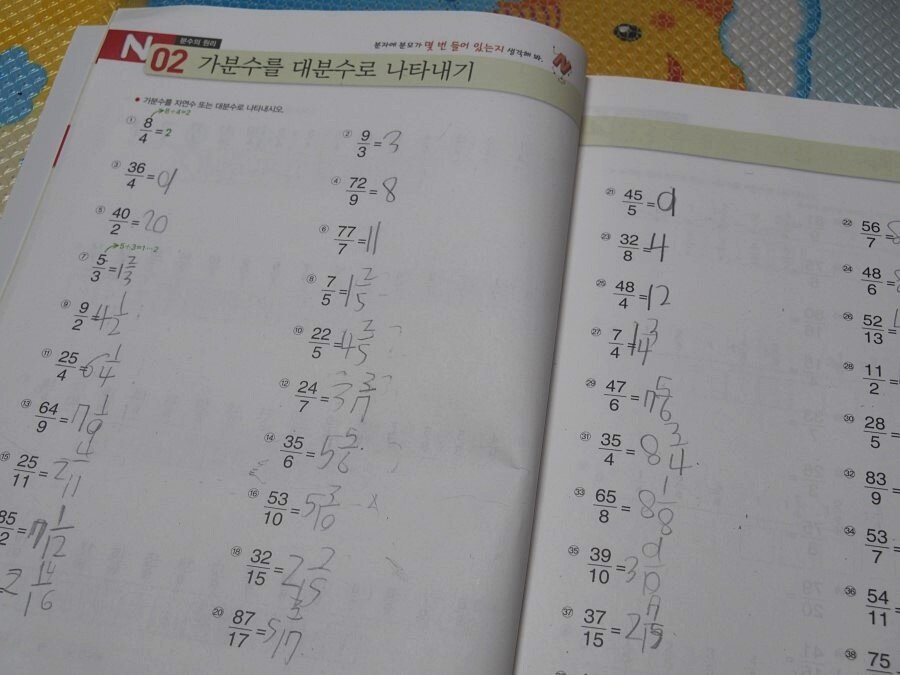 분수의 원리
N 02 가분수를 대분수로 나타내기
분자에 분모가 몇 번 들어 있는지 생각해 봐.
● 가분수를 자연수 또는 대분수로 나타내시오.
8÷4=2
① 8/4=2
② 9/3=3
③ 36/4=9
④ 72/9=8
⑤ 40/2=20
⑥ 77/7=11
5÷3=1…2
⑦ 5/3=1 2/3
⑧ 7/5=1 2/5
⑨ 9/2=4 1/2
⑩ 22/5=4 2/5
⑪ 25/4=6 1/4
⑫ 24/7=3 3/7
⑬ 64/9=7 1/9
⑭ 35/6=5 5/6
⑮ 25/11=2 4/11
⑯ 53/10=5 3/10
7 1/12
⑱ 32/15=2 2/15
2 14/16
⑳ 87/17=5 2/17
㉑ 45/5=9
㉒ 56/7=8
㉓ 32/8=4
㉔ 48/6=8
㉕ 48/4=12
㉖ 52/13=
㉗ 7/4=1 3/4
㉘ 11/2=
㉙ 47/6=7 5/6
㉚ 28/5=
㉛ 35/4=8 3/4
㉜ 83/9=
㉝ 65/8=8 1/8
㉞ 53/7=
㉟ 39/10=3 9/10
㊱ 54/11=
㊲ 37/15=2 7/15
㊳ 75